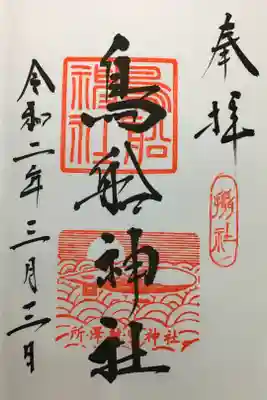 奉拝
攝社
鳥船神社
鳥船
神社
所澤
神社
令和二年三月三日